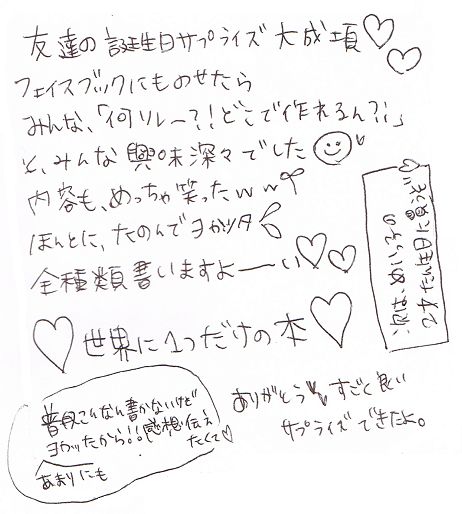 友達の誕生日サプライズ大成項♡♡
フェイスブックにものせたら
みんな、「何ソレー?!どこで作れるん?!」
と、みんな興味深々でした
内容も、めっちゃ笑ったww
ほんとに、たのんでヨカッタ
全種類書いますよーい♡♡
♡世界に1つだけの本♡
次は、めいっ子の
2才たん生日に買うぞ♡
普段こんなん書かないけど
あまりにもヨカッたから!!感想伝え
たくて♡
ありがとう すごく良い
サプライズできたよ。